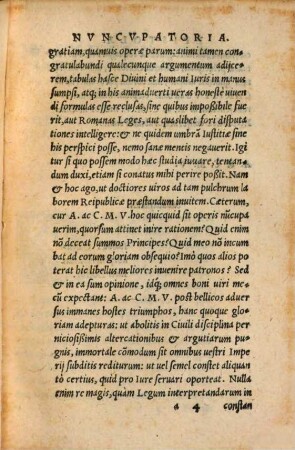 NVNCVPATORIA.
gratiam, quamuis operæ parum: animi tamen con-
gratulabundi qualecunque argumentum adijce-
rem, tabulas hasce Diuini et humani Iuris in manus
sumpsi, atq; in his animaduerti ueras honestè uiuen
di formulas esse reclusas, sine quibus impoßibile fue
rit, aut Romanas Leges, aut quaslibet fori disputa-
tiones intelligere: & ne quidem umbrã Iustitiæ sine
his perspici posse, nemo sanæ mentis negauerit. Igi
tur si quo possem modo hæc studia iuuare, tentan-
dum duxi, etiam si conatus mihi perire poßit. Nam
& hoc ago, ut doctiores uiros ad tam pulchrum la
borem Reipublicæ præstandum inuitem. Cæterum,
cur A. ac C. M. V. hoc quicquid sit operis nũcupa
uerim, quorsum attinet inire rationem? Quid enim
nõ deceat summos Principes? Quid meo nõ incum
bat ad eorum gloriam obsequio? Imò quos alios po
terat hic libellus meliores inuenire patronos? Sed
& in ea sum opinione, idq; omnes boni uiri me-
cũ expectant: A. ac C. M. V. post bellicos aduer
sus immanes hostes triumphos, hanc quoque glo-
riam adepturas: ut abolitis in Ciuili disciplina per
niciosißimis altercationibus & argutiarum pu-
gnis, immortale cõmodum sit omnibus uestri Impe
rij subditis rediturum: ut uel semel constet aliquan
tò certius, quid pro Iure seruari oporteat. Nulla
enim re magis, quam Legum interpretandarum in
a 4 constan